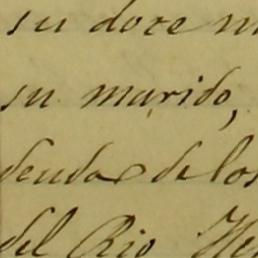 su doce
su marido,
deudas de los
del Rio